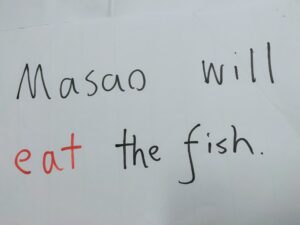 Masao will
eat the fish.